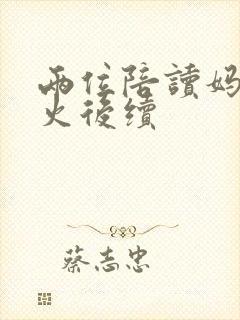 兩位陪讀媽
火後續
蔡志忠